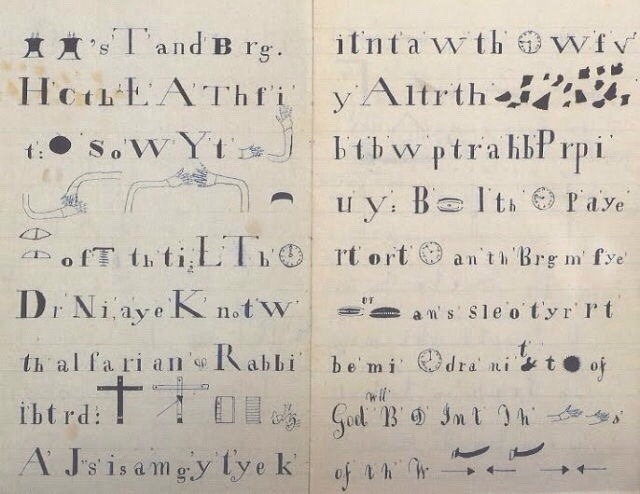 's T' and B rg.
H' c th' E A' T h f i
t: ● S o' W' Y t'
of T th' t i; L T' h'
D r' N i, a y e' K' n o t w'
th' a l f a r i a n' R a b b i'
i b t r d:
A' J's i s a m g y t' y e k'
i t n t a w th' w f v
y A l t r t h
b t b w p t r a h b P r p i
u y: B I th' p a y e
r t o r t a n th' B r g m f y e
or a n s' s l e o t y r r t
b e m i' d r a' n i' t & t ● of
God will B D In t Th s
of th W → ← → ←